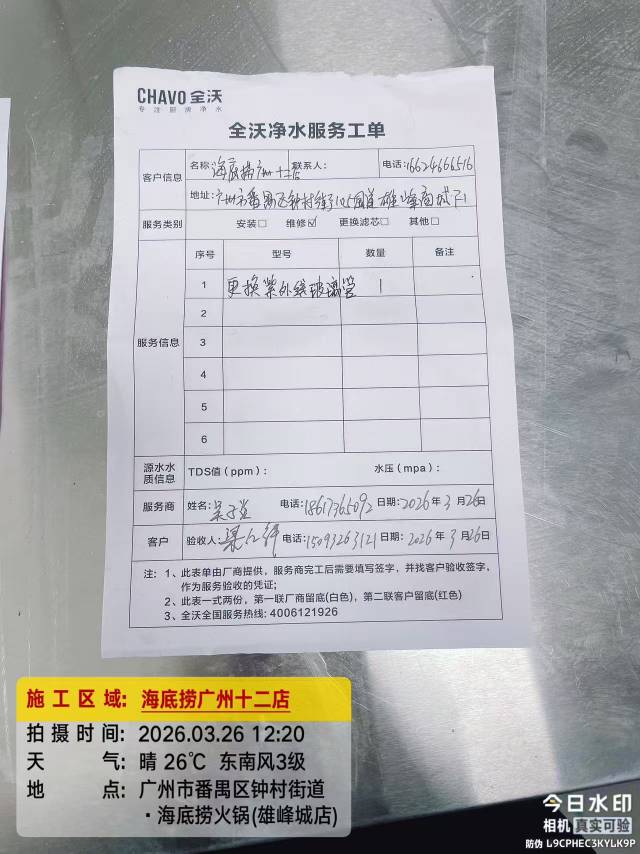 CHAVO 全沃
专注厨房净水
全沃净水服务工单
客户信息
名称: 海底捞广州十二店 联系人: 电话: 16624666516
地址: 广州市番禺区钟村街105国道雄峰商城F1
服务类别 安装□ 维修☑ 更换滤芯□ 其他□
服务信息
序号 型号 数量 备注
1 更换紫外线玻璃管 1
2
3
4
5
6
源水水质信息 TDS值(ppm): 水压(mpa):
服务商 姓名: 电话: 18617365092 日期: 2026年3月26日
客户 验收人: 电话: 15093263121 日期: 2026年3月26日
注: 1、此表单由厂商提供,服务商完工后需要填写签字,并找客户验收签字,
作为服务验收的凭证;
2、此表一式两份,第一联厂商留底(白色),第二联客户留底(红色)
3、全沃全国服务热线: 4006121926
施工区域: 海底捞广州十二店
拍摄时间: 2026.03.26 12:20
天气: 晴 26℃ 东南风3级
地点: 广州市番禺区钟村街道
·海底捞火锅(雄峰城店)
今日水印
相机 真实可验
防伪 L9CPHEC3KYLK9P